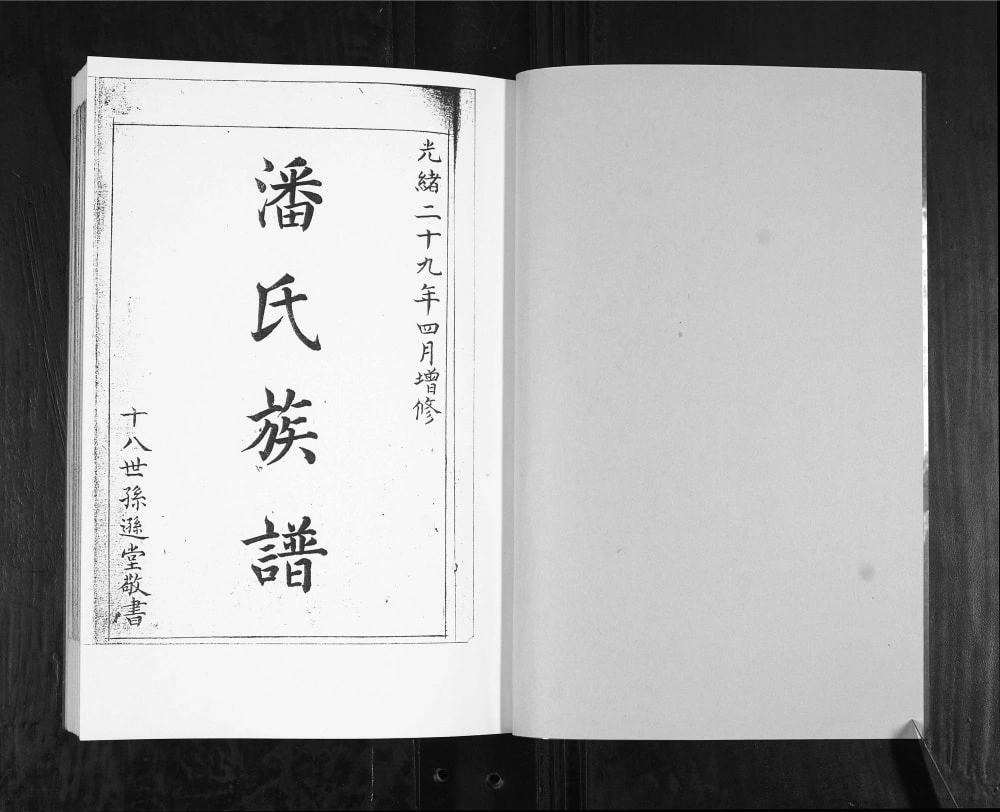 光緒二十九年四月增修
潘氏族譜
十八世孫遜堂敬書